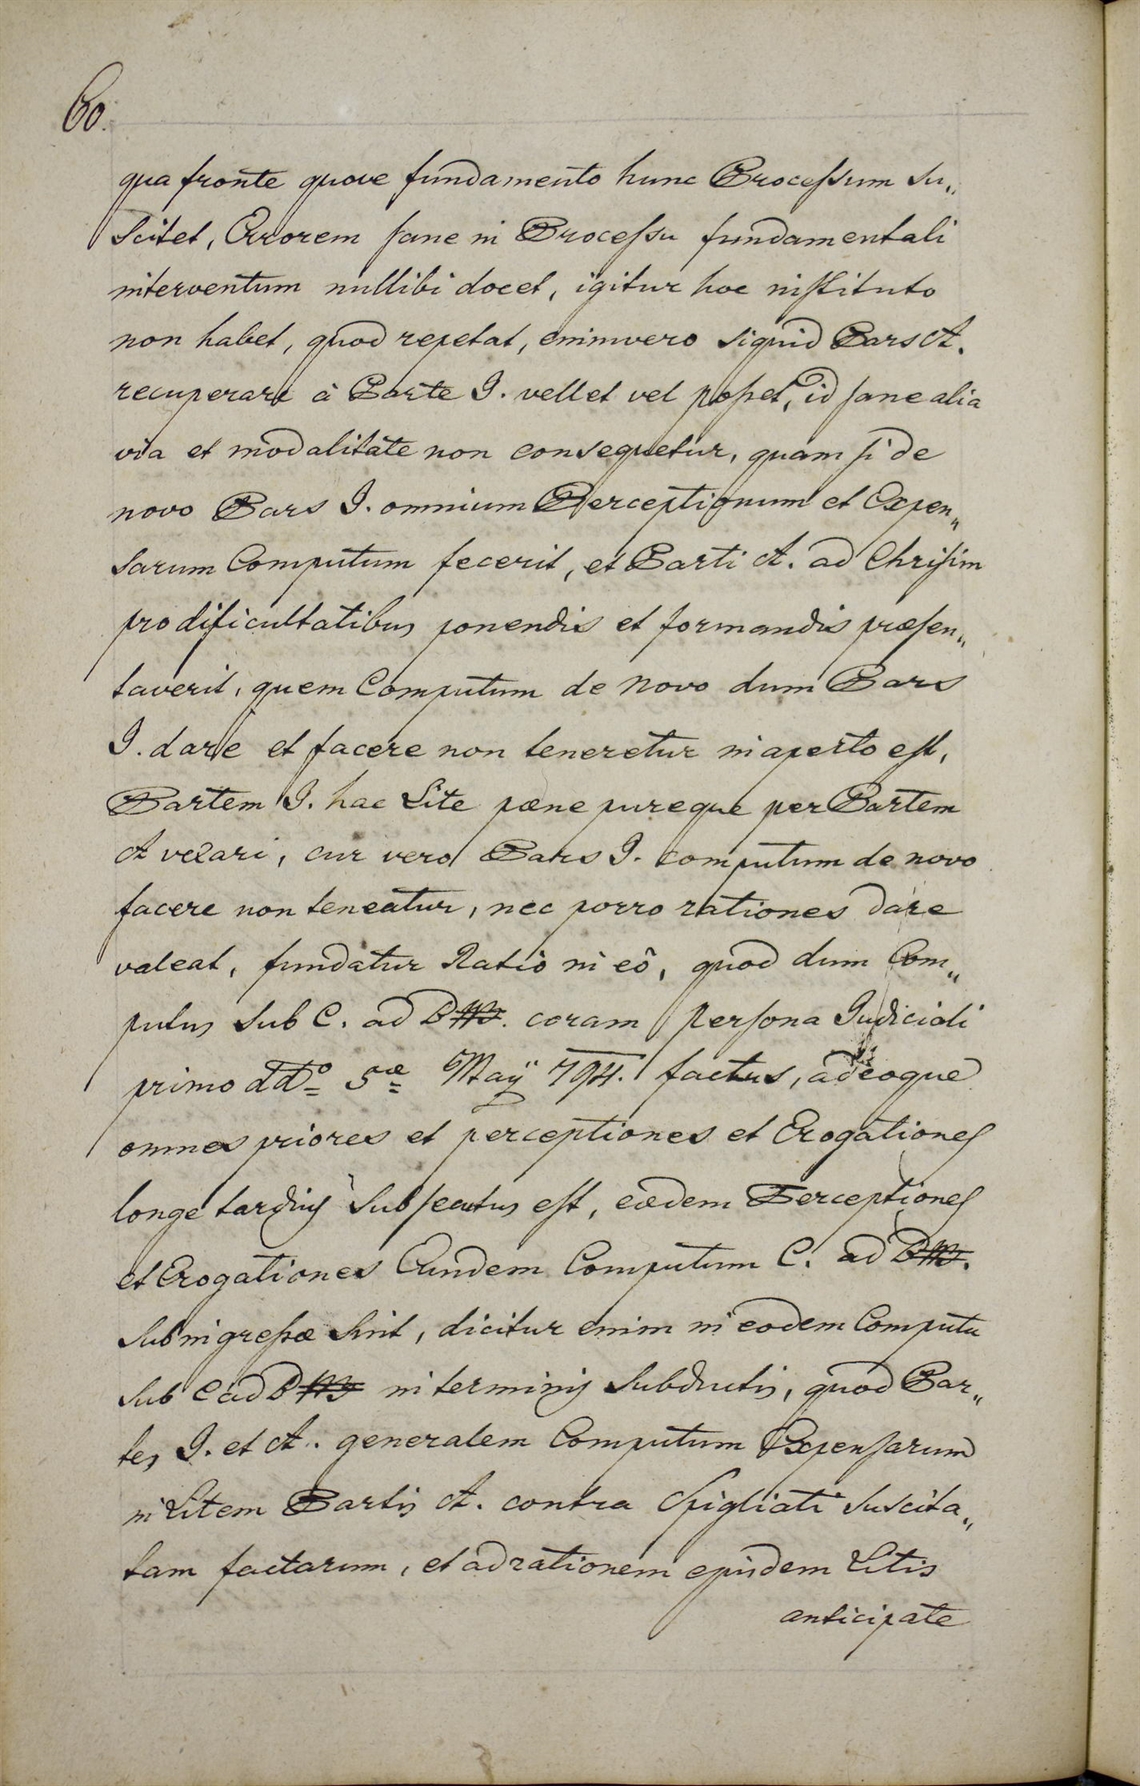 60.
qua fronte quove fundamento hunc Processum su„
scitet, Errorem sane in Processu fundamentali
interventum nullibi docet, igitur hoc instituto
non habet, quod repetat, enimvero siquid Pars A.
recuperare à Parte I. vellet vel posset, id sane alia
via et modalitate non consequetur, quam si de
novo Pars I. omnium Perceptionum et Expen„
sarum Computum fecerit, et Parti A. ad Chrisim
pro dificultatibus ponendis et formandis præsen„
taverit, quem Computum de novo dum Pars
I. dare et facere non teneretur in aperto est,
Partem I. hac Lite pæne pureque per Partem
A vexari, cur vero Pars I. computum de novo
facere non teneatur, nec porro rationes dare
valeat, fundatur Ratio in eô, quod dum Com„
putus sub C. ad D coram persona Judiciali
primo ddto 5æ Maÿ 794. factus, adeoque
omnes priores et perceptiones et Erogationes
longe tardius subsecutus est, eædem Perceptiones
et Erogationes Eundem Computum C. ad D
subingressæ sint, dicitur enim in eodem Computu
sub C ad D in terminis subductis, quod Par„
tes I. et A. generalem Computum Expensarum
in Litem Partis A. contra Spigliati suscita„
tam factarum, et ad rationem ejusdem Litis
anticipate